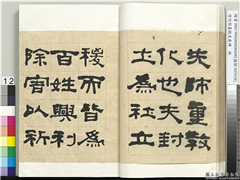 先師重教
化也夫封
土為社立
稷而皆為
百姓興利
除害以祈
12